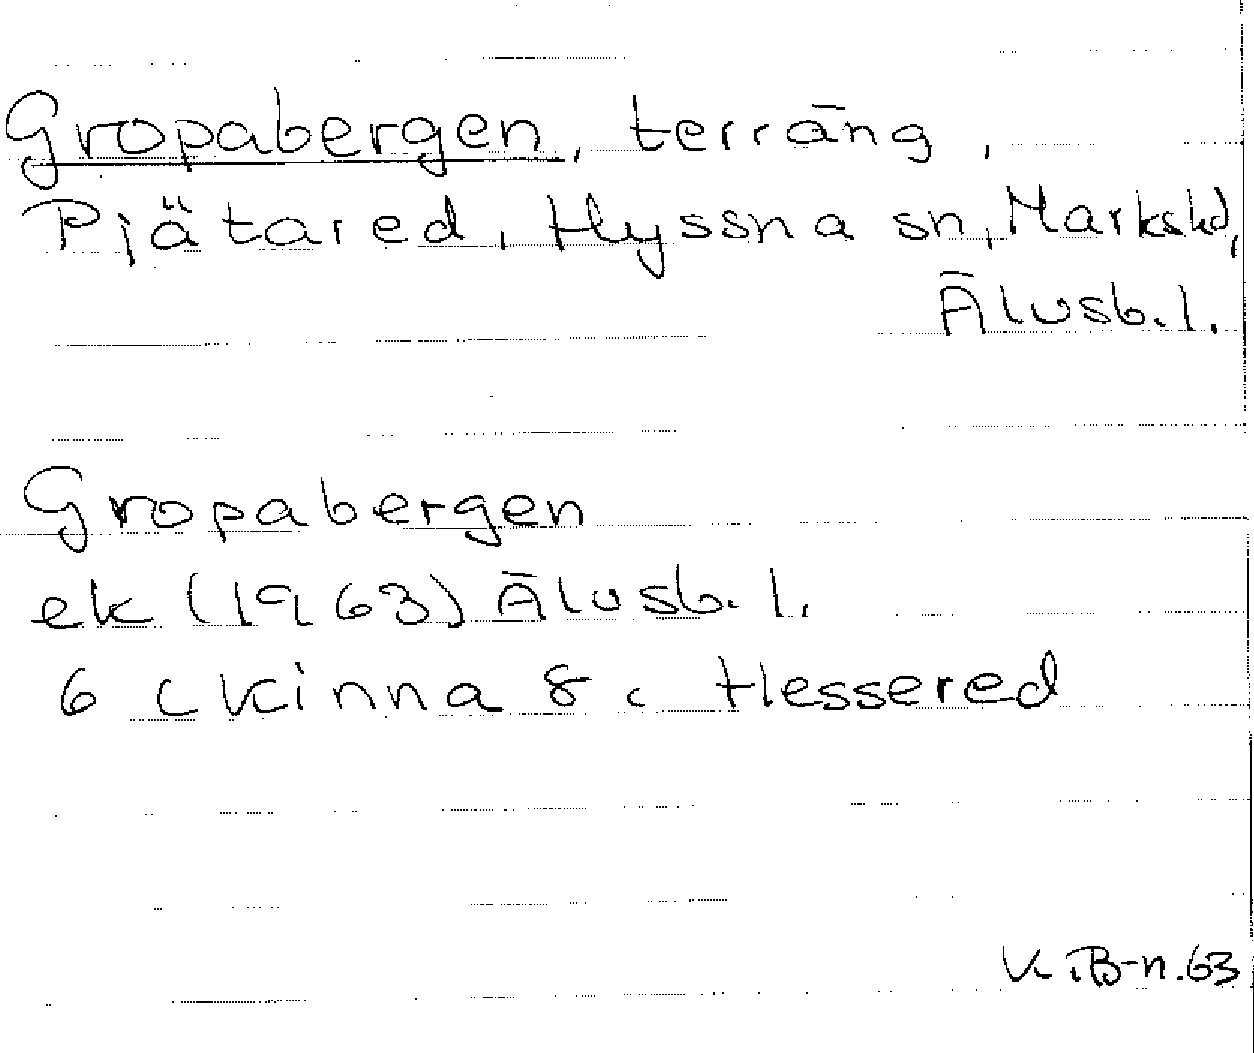 Gropabergen, terräng,
Pjätared, Hyssna sn, Markshd,
Älvsb.l.
Gropabergen
ek (1963) Älvsb.l.
6 c Kinna 8 c Hessered
K.iB-n.63